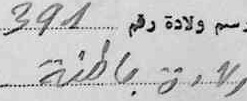 رسم ولادة رقم 391
ولادة باطنة